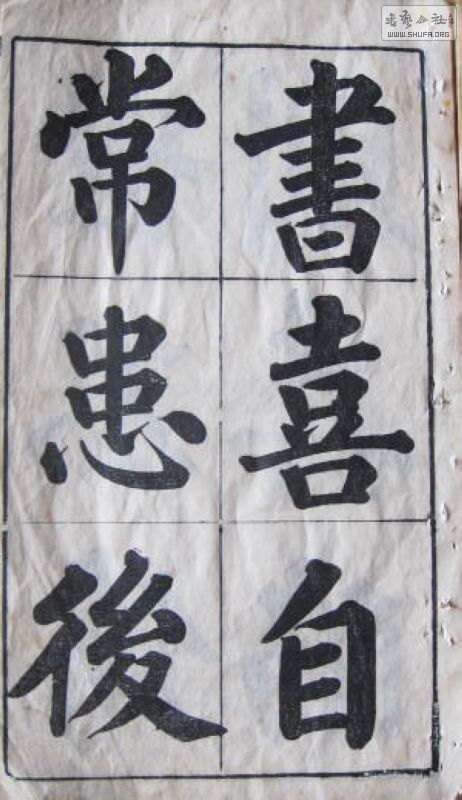 書喜自
常患後
書藝公社
WWW.SHUFA.ORG